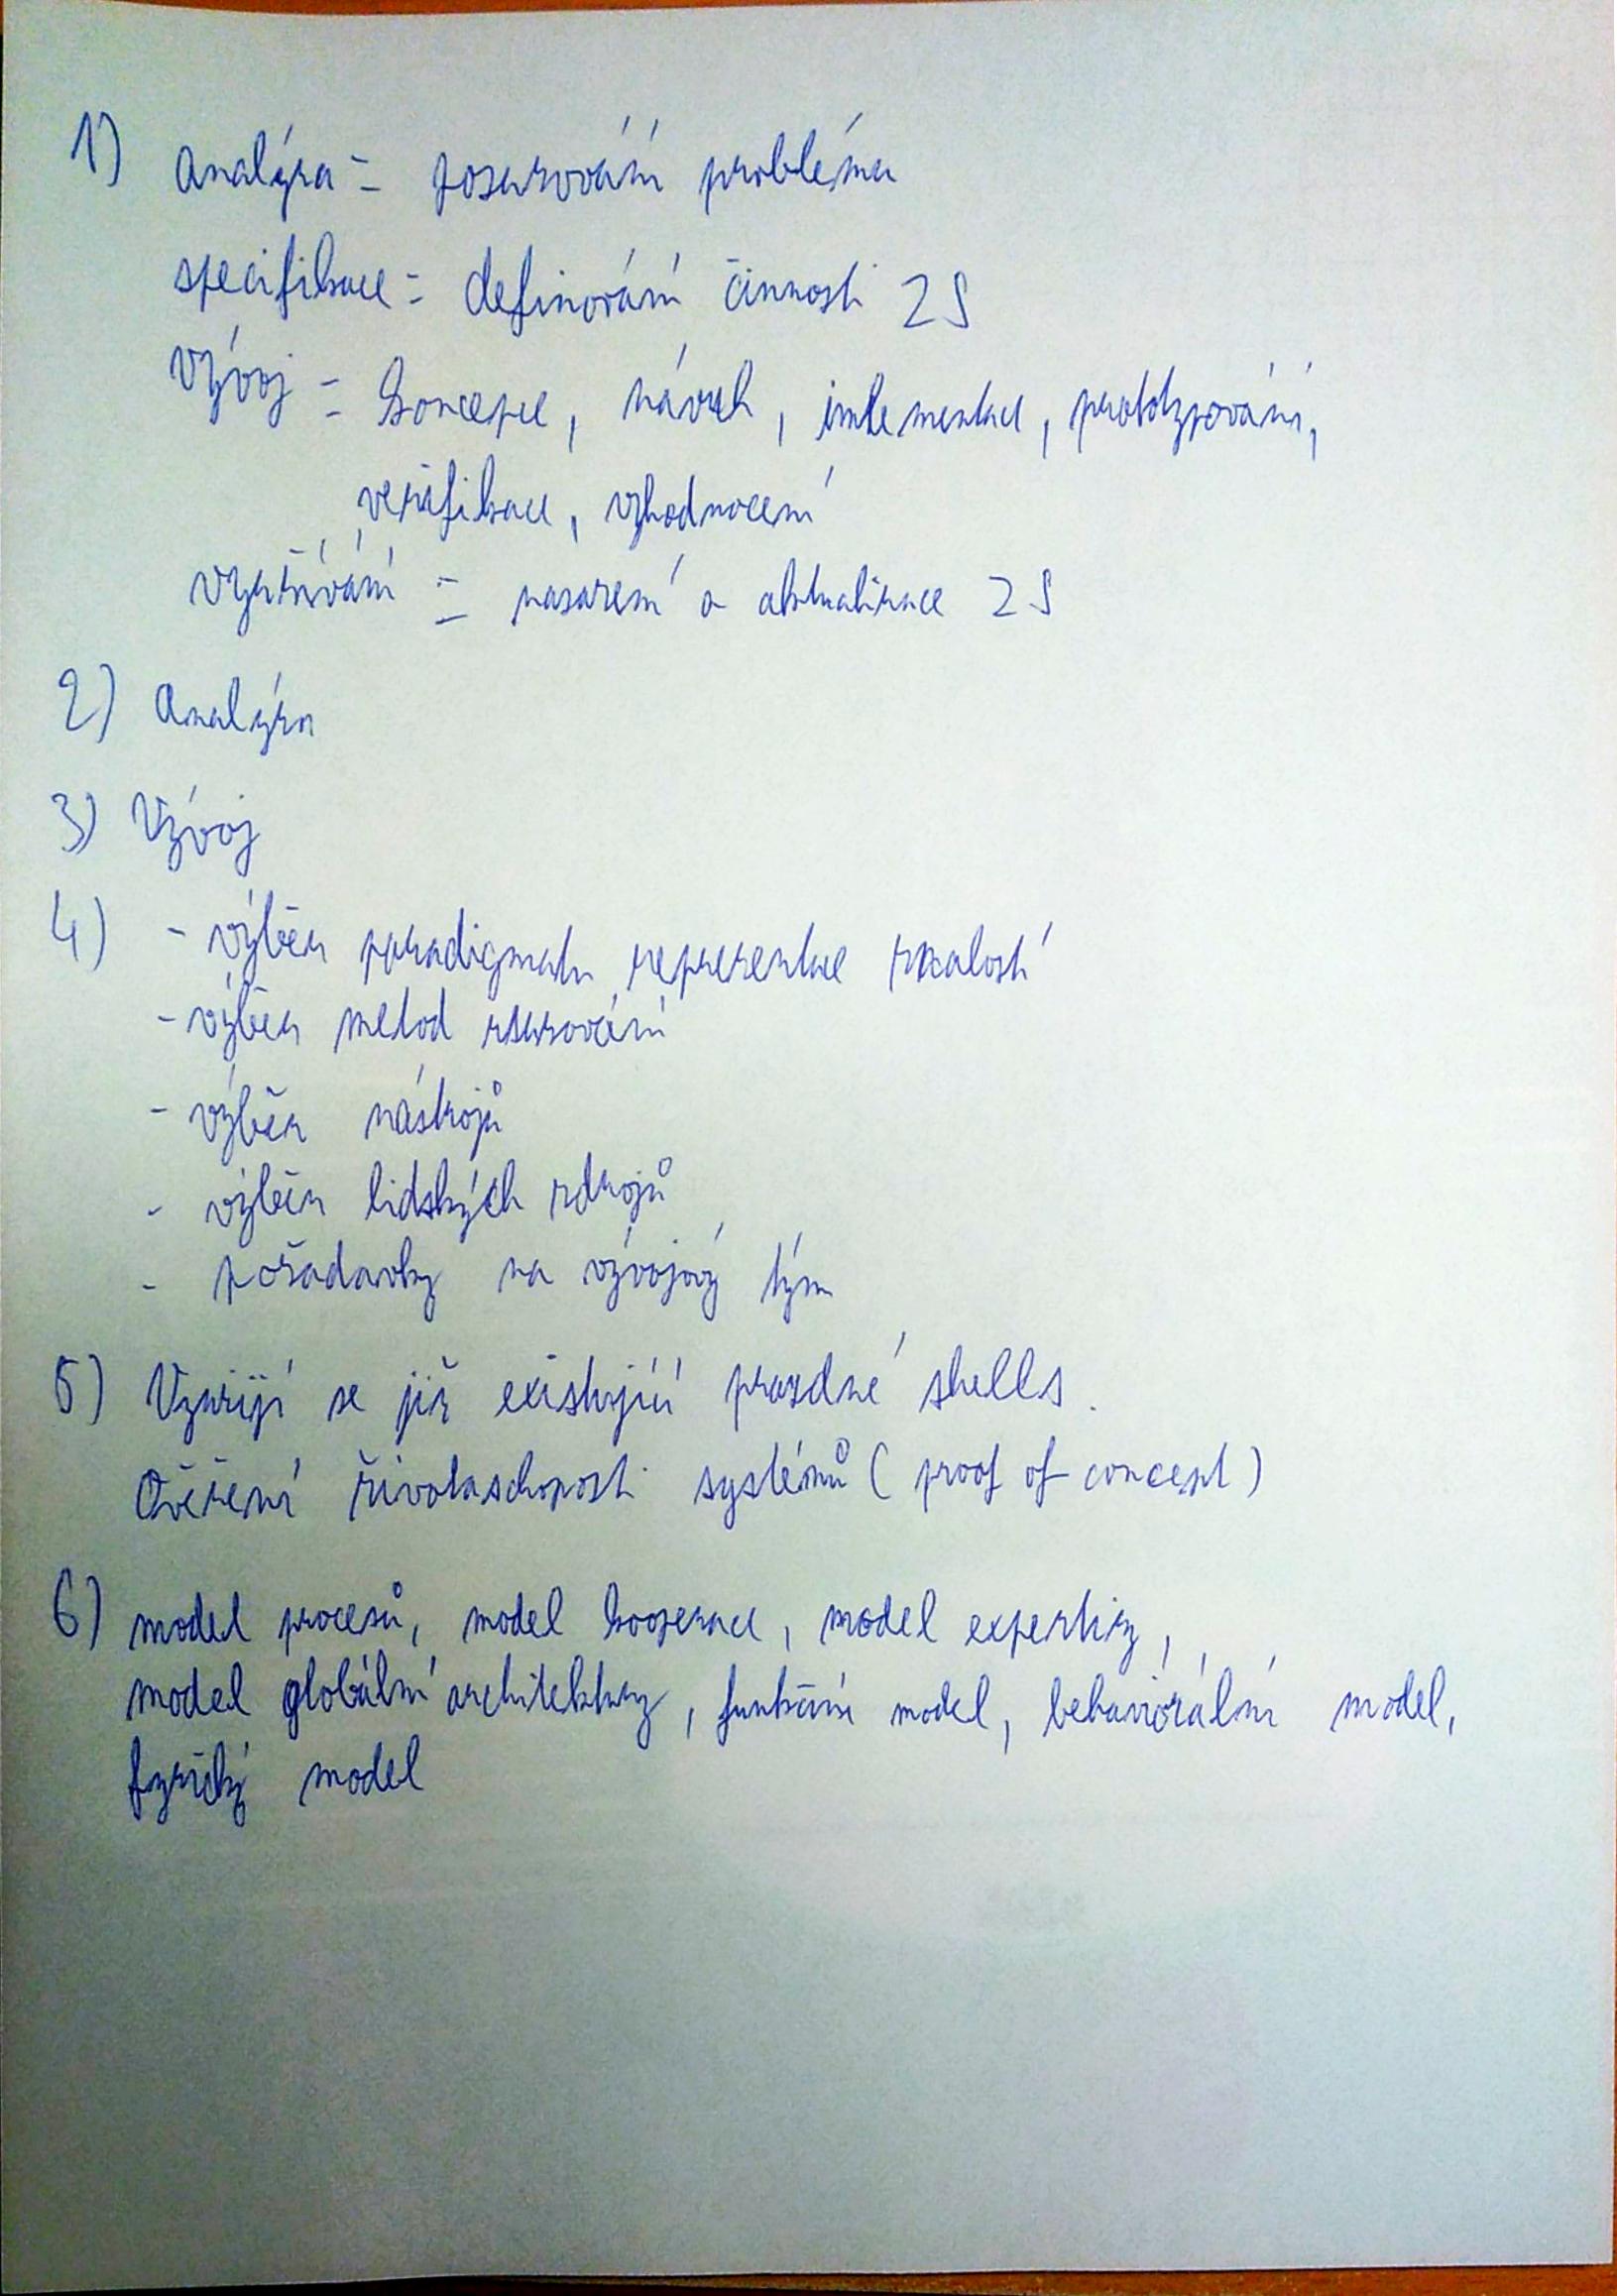 1) Analýza = posuzování problému
specifikace = definování činnosti ZS
Vývoj = koncepce, návrh, imlementace, prototypování,
verifikace, vyhodnocení
využívání = nasazení a aktualizace ZS
2) Analýza
3) Vývoj
4) - výběr paradigmatu reprezentace znalostí
- výběr metod usuzování
- výběr nástrojů
- výběr lidských zdrojů
- požadavky na vývojový tým
5) Využijí se již existující prazdné shells.
Ověření životaschopnosti systémů (proof of concept)
6) model procesů, model kooperace, model expertizy,
model globální architektury, funkční model, behaviorální model,
fyzický model